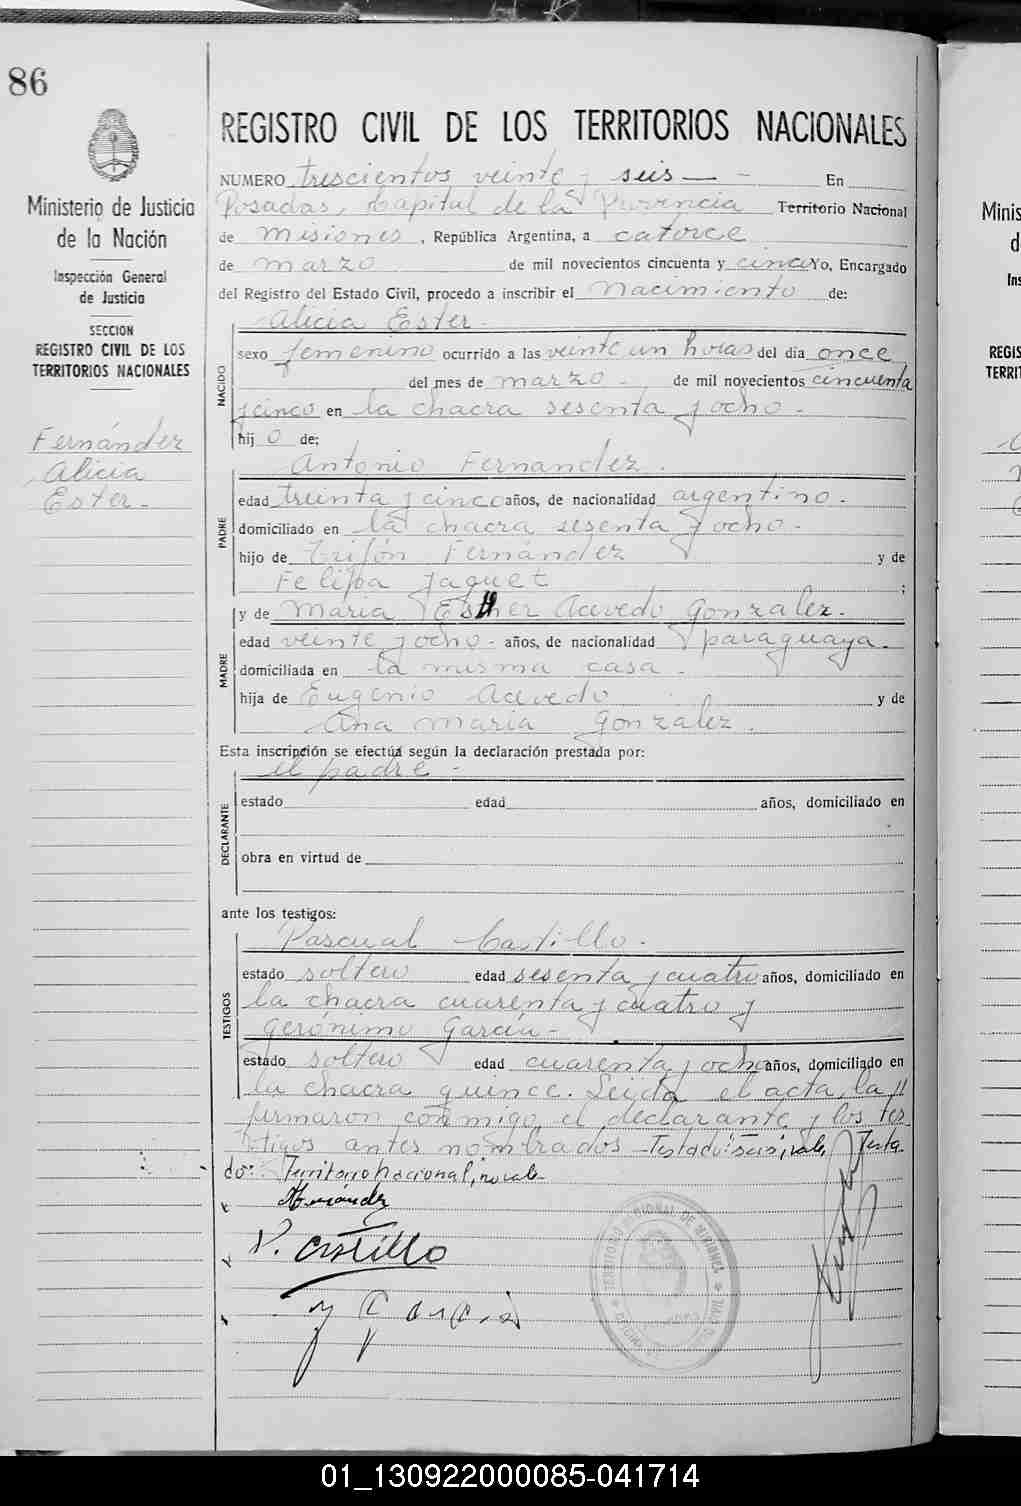 86
Ministerio de Justicia
de la Nación
Inspección General
de Justicia
SECCION
REGISTRO CIVIL DE LOS
TERRITORIOS NACIONALES
Fernández
Alicia
Ester.-
REGISTRO CIVIL DE LOS TERRITORIOS NACIONALES
NUMERO trescientos veinte y seis — - En
Posadas, Capital de la Provincia Territorio Nacional
de Misiones, República Argentina, a catorce
de marzo de mil novecientos cincuenta y cinco Yo, Encargado
del Registro del Estado Civil, procedo a inscribir el Nacimiento de:
Alicia Ester.
NACIDO
sexo femenino ocurrido a las veinte un horas del día once
del mes de marzo - de mil novecientos cincuenta
y cinco en la chacra sesenta y ocho -
hij o de:
Antonio Fernandez.
PADRE
edad treinta y cinco años, de nacionalidad argentino.
domiciliado en la chacra sesenta y ocho -
hijo de Trifón Fernández y de
Felipa Jaquet ;
y de Maria Esther Acevedo Gonzalez.
MADRE
edad veinte y ocho - años, de nacionalidad paraguaya.
domiciliada en la misma casa -
hija de Eugenio Acevedo y de
Ana Maria Gonzalez.
Esta inscripción se efectúa según la declaración prestada por:
el padre -
DECLARANTE
estado edad años, domiciliado en
obra en virtud de
ante los testigos:
Pascual Castillo.
TESTIGOS
estado soltero edad sesenta y cuatro años, domiciliado en
la chacra cuarenta y cuatro y
Gerónimo Garcia -
estado soltero edad cuarenta y ocho años, domiciliado en
la chacra quince. Leida el acta, la
firmaron conmigo el declarante y los tes
tigos antes nombrados - Testado: seis; vale, Testa-
do: Territorio Nacional; no vale-
AFernández
P. Castillo
y Garcia
Minis
d
Ins
REGIS
TERRIT
01_130922000085-041714